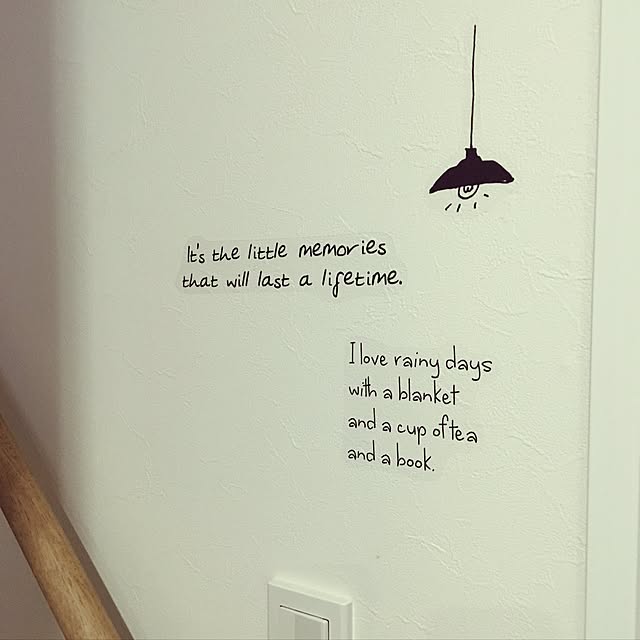 It's the little memories
that will last a lifetime.
I love rainy days
with a blanket
and a cup of tea
and a book.